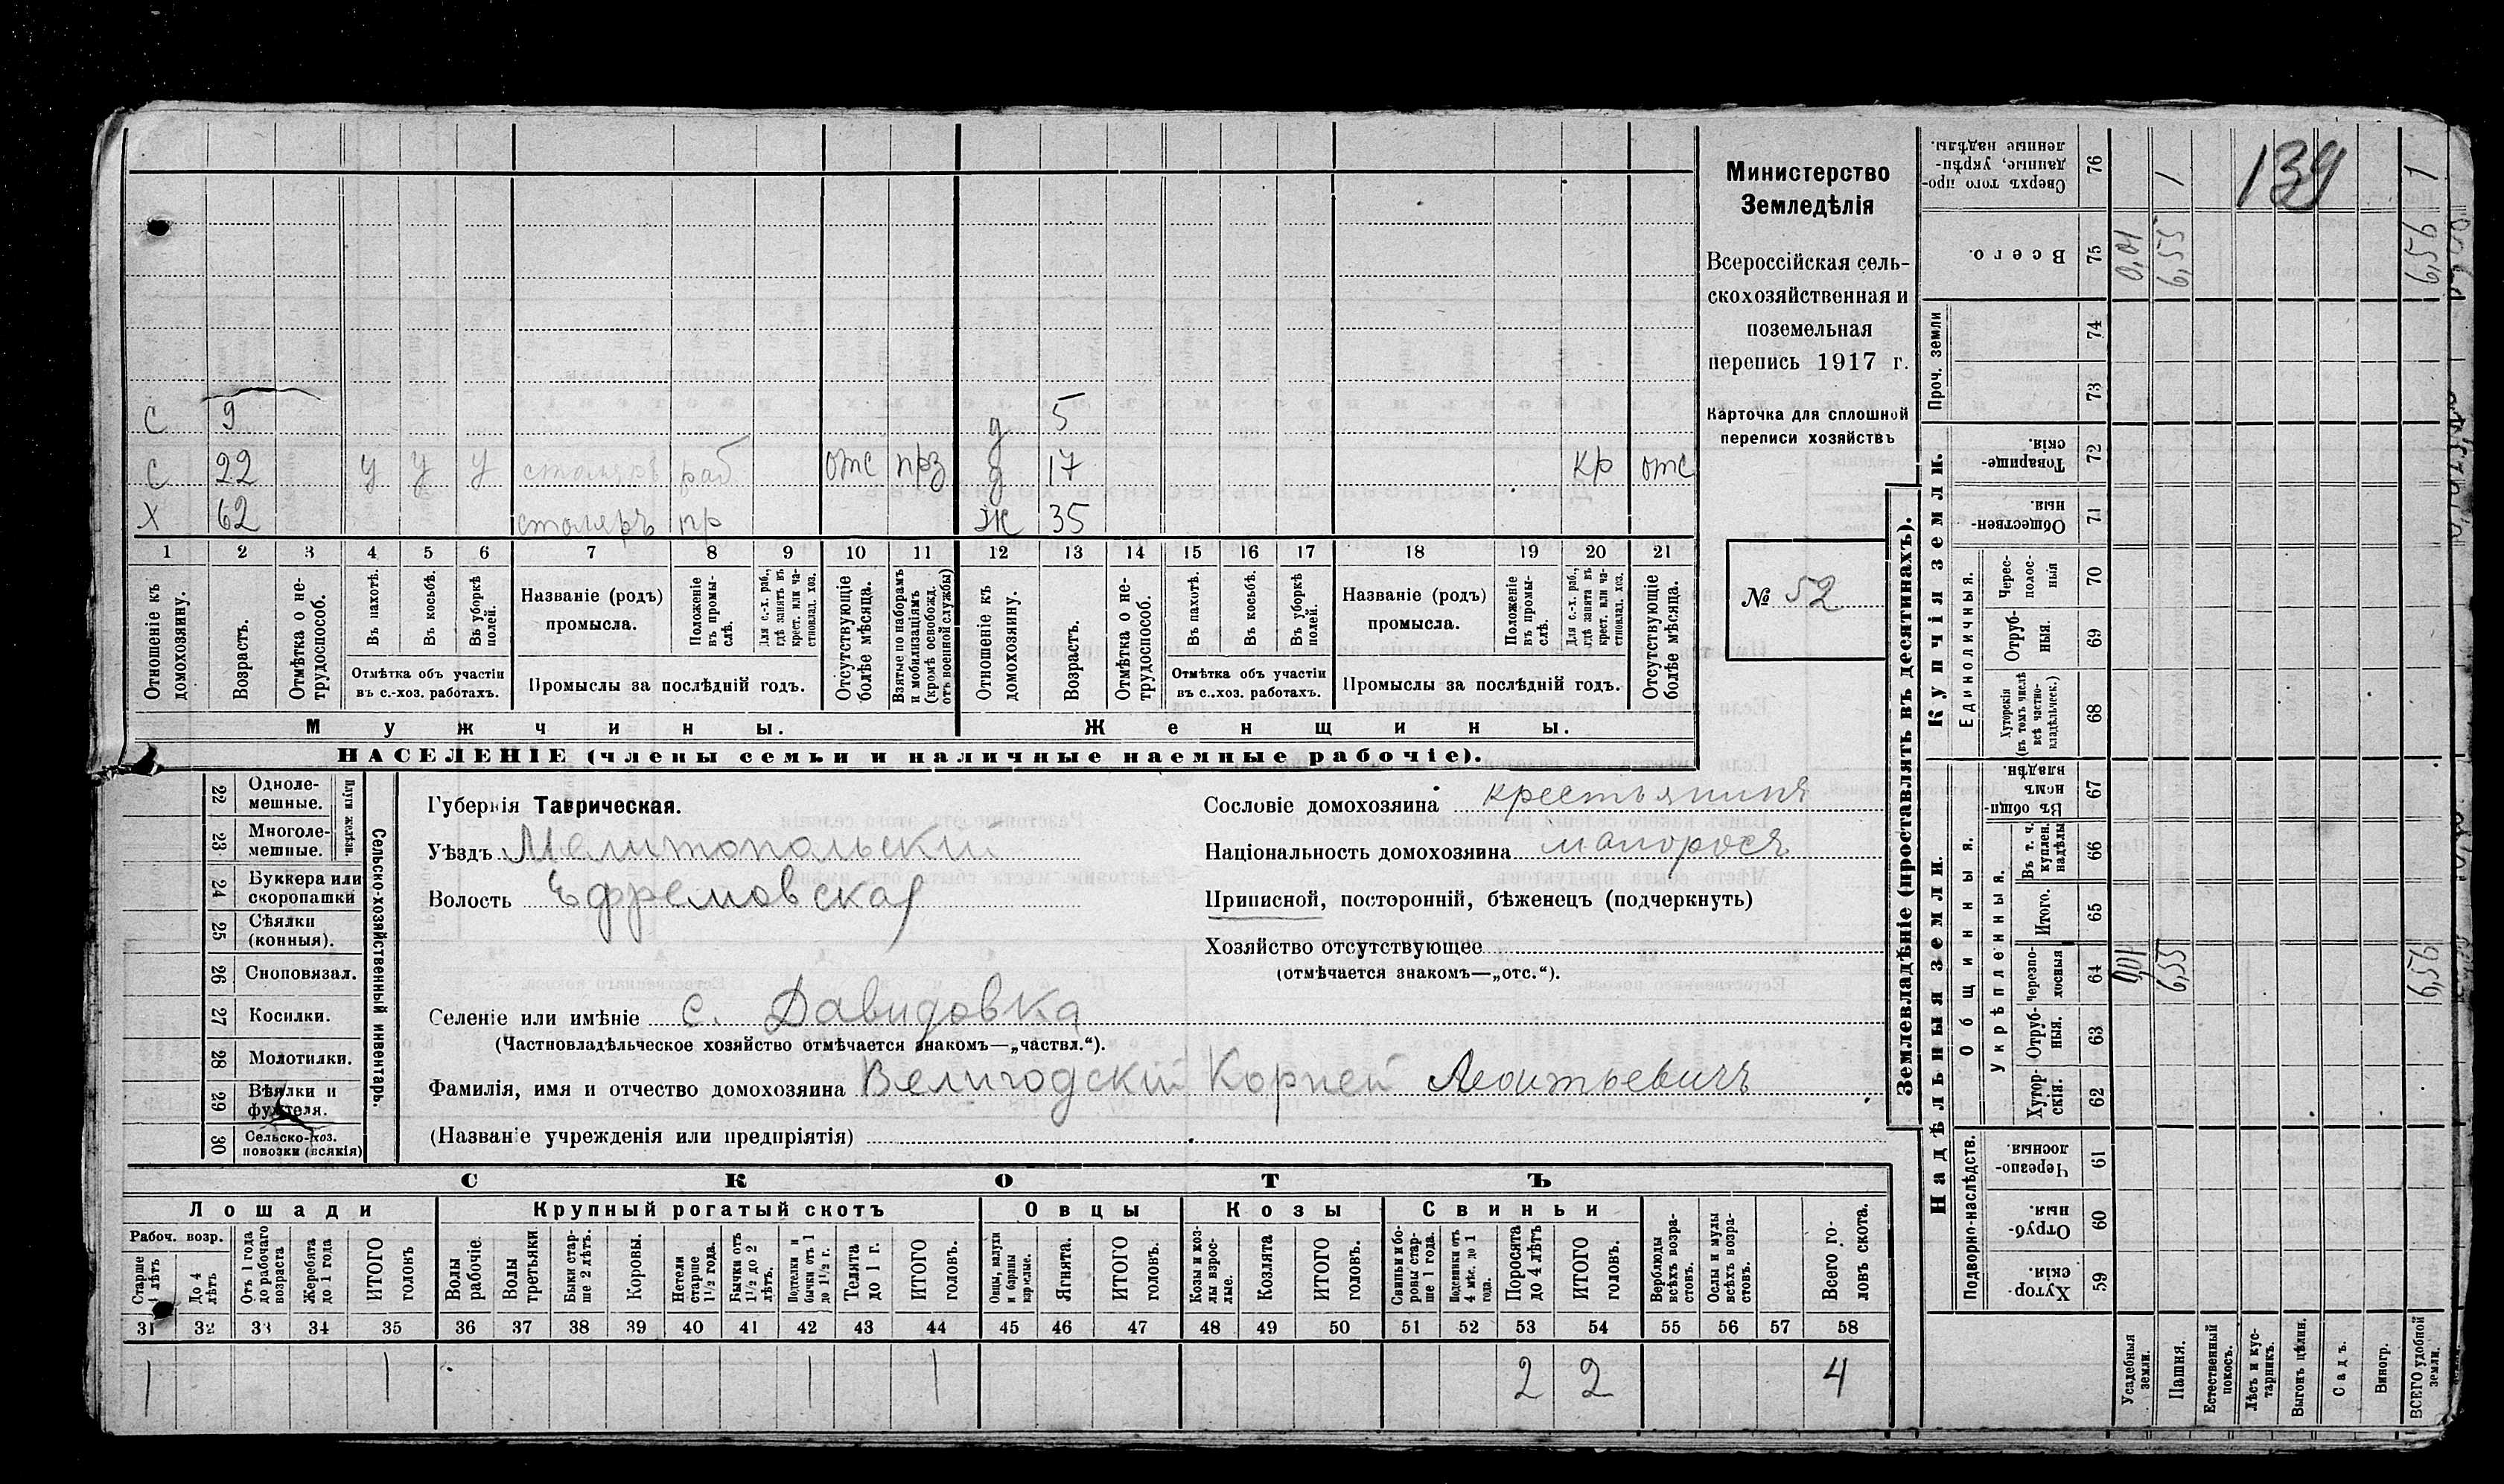 С 9 д 5
С 22 у у у столяръ раб отс прз д 17 кр отс
Х 62 столяръ пр ж 35
1 2 3 4 5 6 7 8 9 10 11 12 13 14 15 16 17 18 19 20 21
Отношеніе къ домохозяину.
Возрастъ.
Отмѣтка о не-
трудоспособ.
Въ пахотѣ.
Въ косьбѣ.
Въ уборкѣ
полей.
Отмѣтка объ участіи
въ с.-хоз. работахъ.
Названіе (родъ)
промысла.
Положеніе
въ промы-
слѣ.
Для с.-х. раб.,
гдѣ занятъ въ
крест. или ча-
стновлад. хоз.
Промыслы за послѣдній годъ.
Отсутствующіе
болѣе мѣсяца.
Взятые по наборамъ
и мобилизаціямъ
(кромѣ освобожд.
отъ военной службы)
Отношеніе къ
домохозяину.
Возрастъ.
Отмѣтка о не-
трудоспособ.
Въ пахотѣ.
Въ косьбѣ.
Въ уборкѣ
полей.
Отмѣтка объ участіи
въ с.-хоз. работахъ.
Названіе (родъ)
промысла.
Положеніе
въ промы-
слѣ.
Для с.-х. раб.,
гдѣ занята въ
крест. или ча-
стновлад. хоз.
Промыслы за послѣдній годъ.
Отсутствующіе
болѣе мѣсяца.
Мужчины.
Женщины.
НАСЕЛЕНІЕ (члены семьи и наличные наемные рабочіе).
Министерство
Земледѣлія
Всероссійская сель-
скохозяйственная и
поземельная
перепись 1917 г.
Карточка для сплошной
переписи хозяйствъ
№ 52
22 Одноле-
мешные.
23 Многоле-
мешные.
Плуги желѣзн.
24 Буккера или
скоропашки
25 Сѣялки
(конныя).
26 Сноповязал.
27 Косилки.
28 Молотилки.
29 Вѣялки и
фухтеля.
30 Сельско-хоз.
повозки (всякія)
Сельско-хозяйственный инвентарь.
Губернія Таврическая.
Уѣздъ Мелитопольскій
Волость Ефремовская
Сословіе домохозяина крестьянинъ
Національность домохозяина малоросъ
Приписной, посторонній, бѣженецъ (подчеркнуть)
Хозяйство отсутствующее
(отмѣчается знакомъ—„отс.“).
Селеніе или имѣніе с. Давидовка
(Частновладѣльческое хозяйство отмѣчается знакомъ—„частвл.“).
Фамилія, имя и отчество домохозяина Велигодскій Корней Леонтьевичъ
(Названіе учрежденія или предпріятія)
СКОТЪ
Лошади Крупный рогатый скотъ Овцы Козы Свиньи
Рабоч. возр.
Старше
4 лѣтъ
До 4
лѣтъ
Отъ 1 года
до рабочаго
возраста
Жеребята
до 1 года
ИТОГО
головъ
Волы
рабочіе.
Волы
третьяки
Быки стар-
ше 2 лѣтъ.
Коровы.
Нетели
старше
1½ года.
Бычки отъ
1½ до 2
лѣтъ.
Подтелки и
бычки отъ 1
до 1½ г.
Телята
до 1 г.
ИТОГО
головъ.
Овцы, валухи
и бараны
взрослые.
Ягнята.
ИТОГО
головъ.
Козы и коз-
лы взрос-
лые.
Козлята
ИТОГО
головъ.
Свиньи и бо-
ровы стар-
ше 1 года.
Подсвинки отъ
4 мѣс. до 1
года.
Поросята
до 4 лѣтъ
ИТОГО
головъ.
Верблюды
всѣхъ возра-
стовъ.
Ослы и мулы
всѣхъ возра-
стовъ.
Всего го-
ловъ скота.
31 32 33 34 35 36 37 38 39 40 41 42 43 44 45 46 47 48 49 50 51 52 53 54 55 56 57 58
1 1 1 1 2 2 4
Землевладѣніе (проставлять въ десятинахъ).
Надѣльныя земли.
Купчія земли.
Проч. земли
Подворно-наслѣдств.
Общинныя.
Укрѣпленныя.
Единоличныя.
Сверхъ того про-
данные, укрѣп-
ленные надѣлы.
76 1 1
139
Всего.
75 0,01 6,55 6,56
74
73
Товарище-
скія.
72
Обществен-
ныя.
71
Черес-
полос-
ныя
70
Отруб-
ныя.
69
Хуторскія
(въ томъ числѣ
всѣ частно-
владѣльческ.)
68
Въ общин-
номъ
владѣн.
67
Въ т. ч.
куплен.
надѣлы
66
Итого.
65
Черезпо-
лосныя
64 0,01 6,55 6,56
Отруб-
ныя.
63
Хутор-
скія.
62
Черезпо-
лосныя.
61
Отруб-
ныя.
60
Хутор-
скія.
59
Усадебныя
земли.
Пашня.
Естественный
покосъ.
Лѣсъ и кус-
тарникъ.
Выгонъ цѣлин.
Садъ.
Виногр.
ВСЕГО удобной
земли.